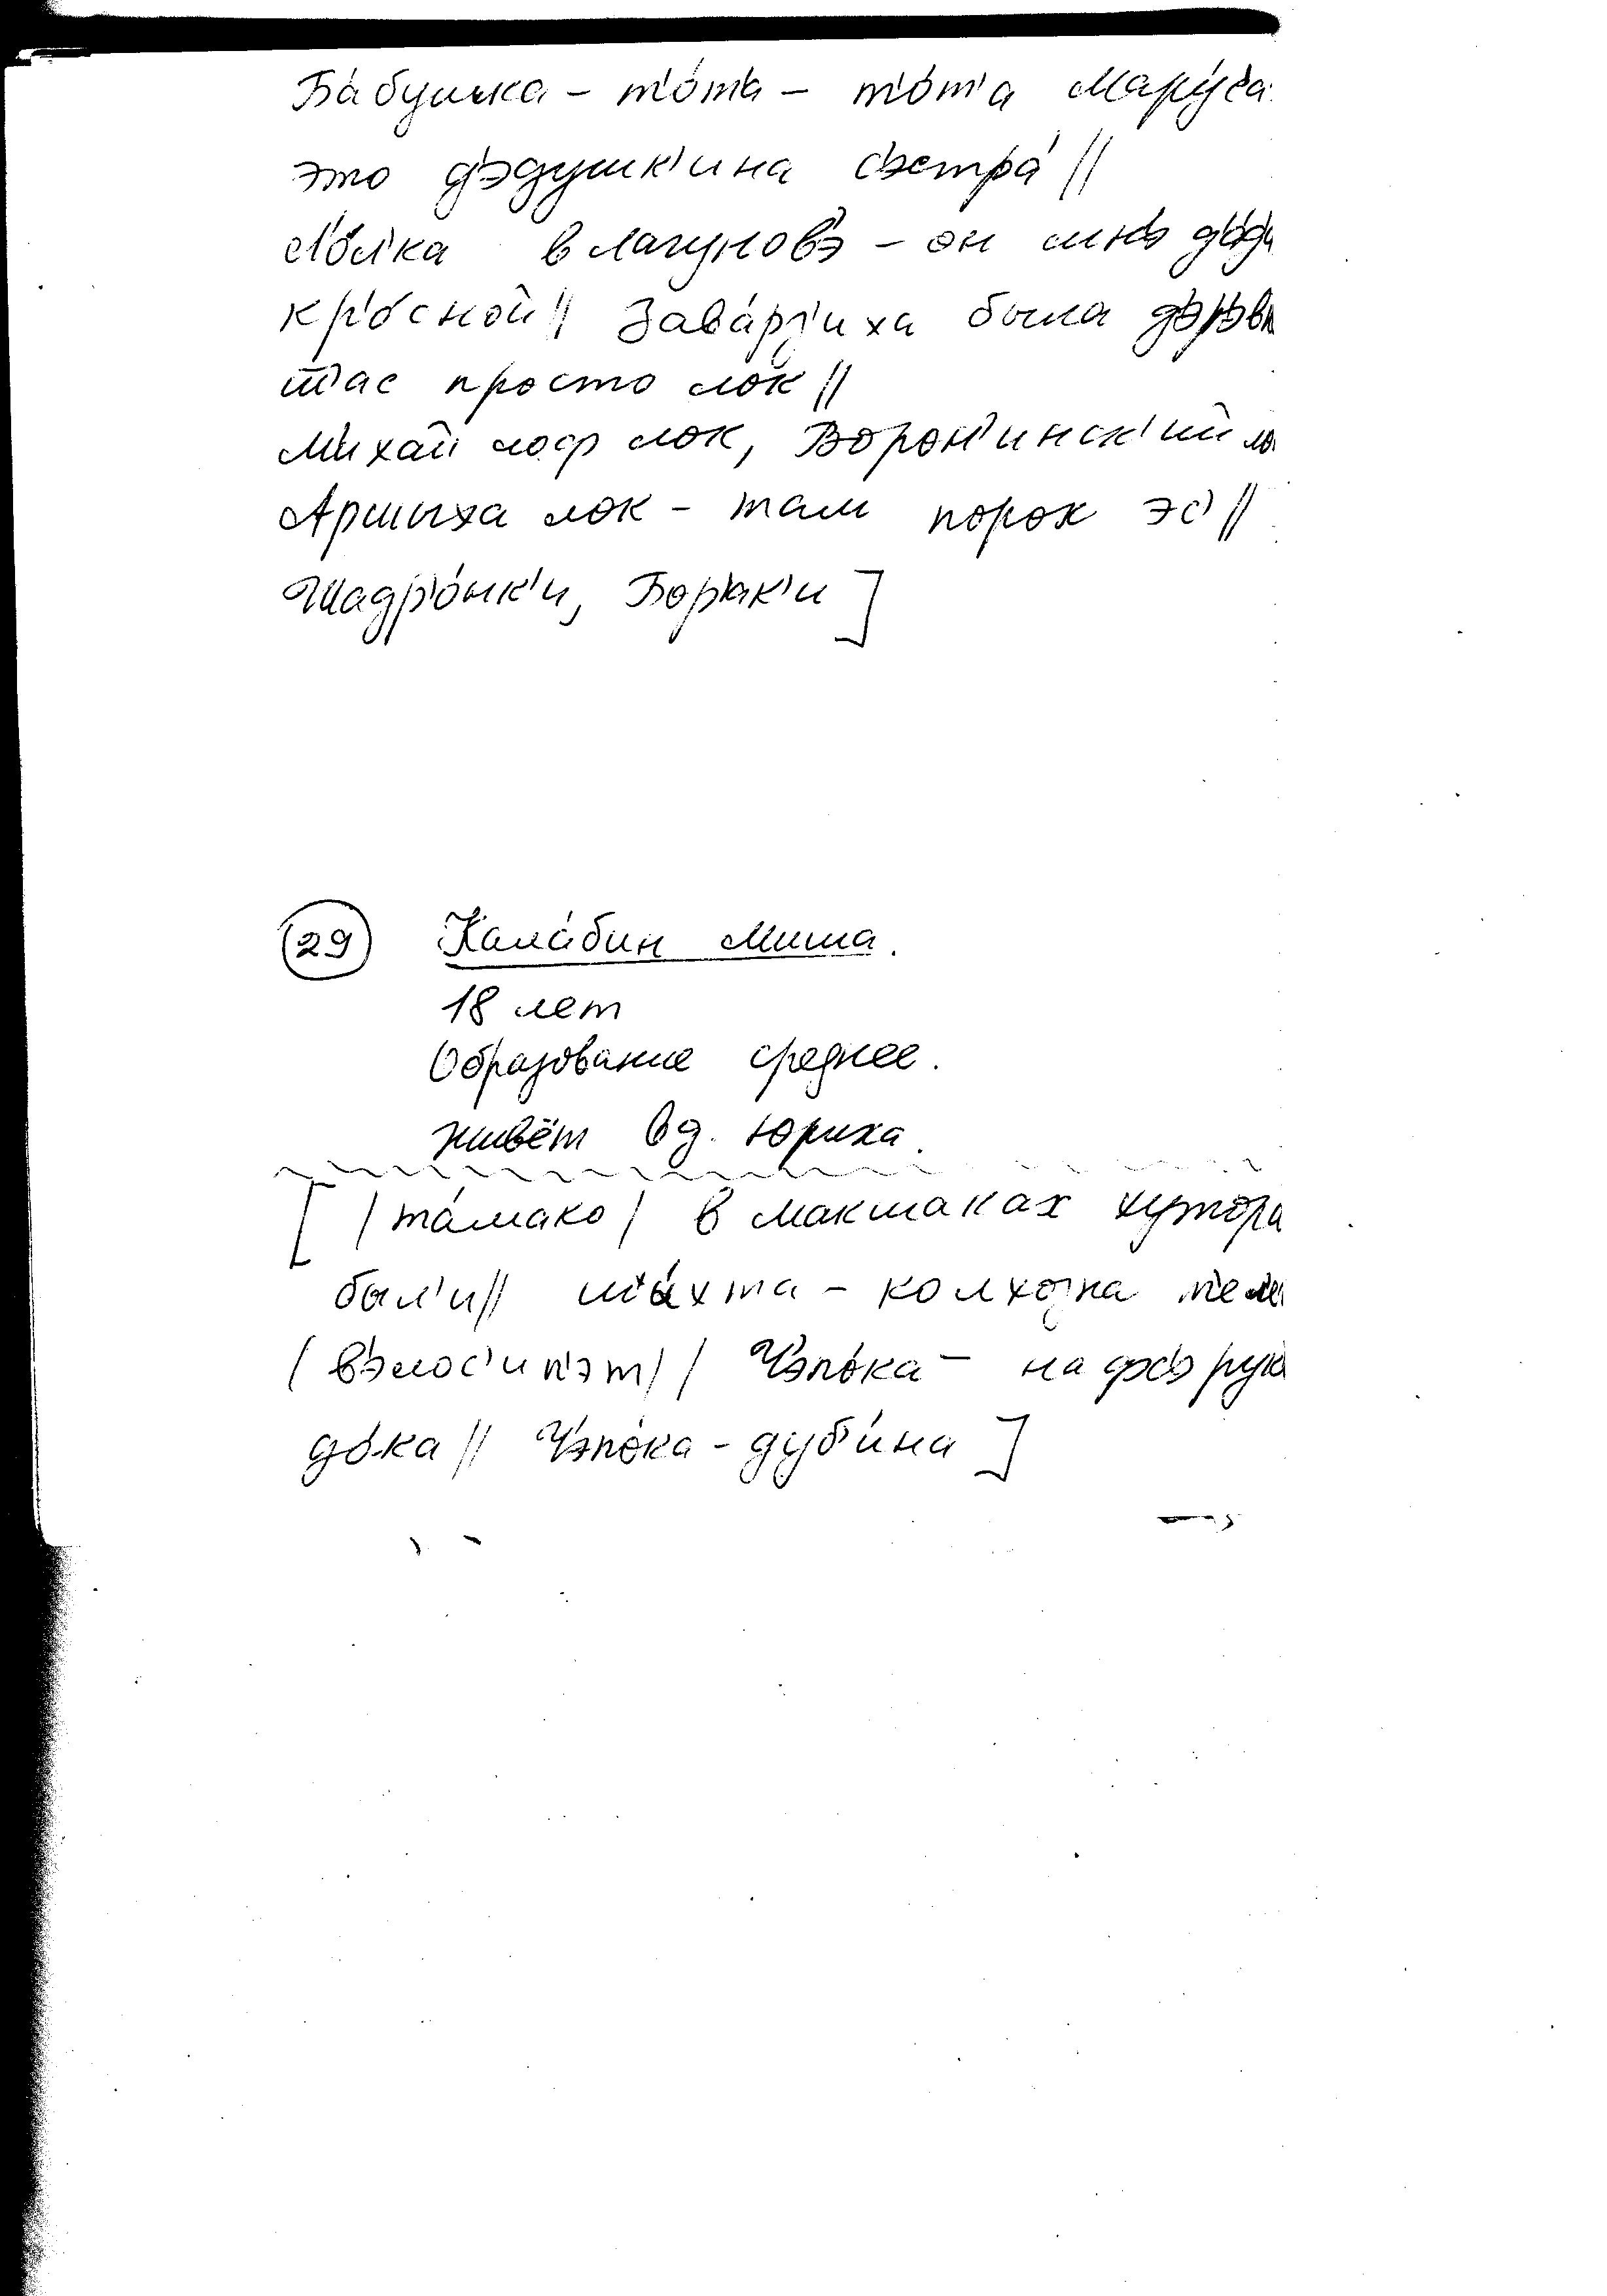 Ба́бушка – т'о́т'а – т'о́т'а Мару́с'а
это д'э́душк'ина с'эстра́ //
Л'о́л'ка в лагунов'э – он мн'э
кр'о́сной // Зава́рз'иха была
просто лок //
М'ихайлоф лок, Ворон'инск'ий
Аршыха лок – там порок эс' //
Шадр'о́нк'и, Бор'ак'и ]
(29) Кала́бин Миша.
18 лет
Образование среднее.
живёт в д. Юриха.
[ /та́мако/ в макшаках хутора
был'и // ша́хта – колхозна
(в'элос'ип'эт) / Чэпо́ка – на фс'э
до́ка // Чэпо́ка – дуб'и́на ]